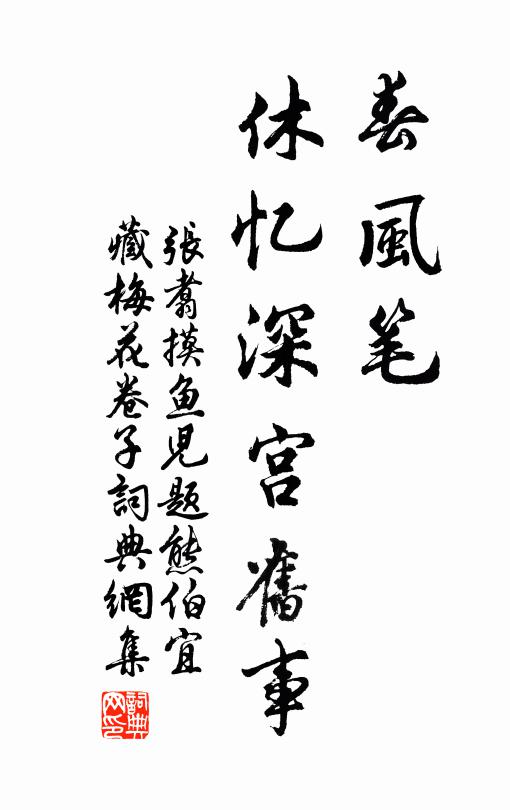 春風笔
休忆深宫舊事
張翥摸鱼児題熊伯宜
藏梅花卷子詞典網集
詞典网印